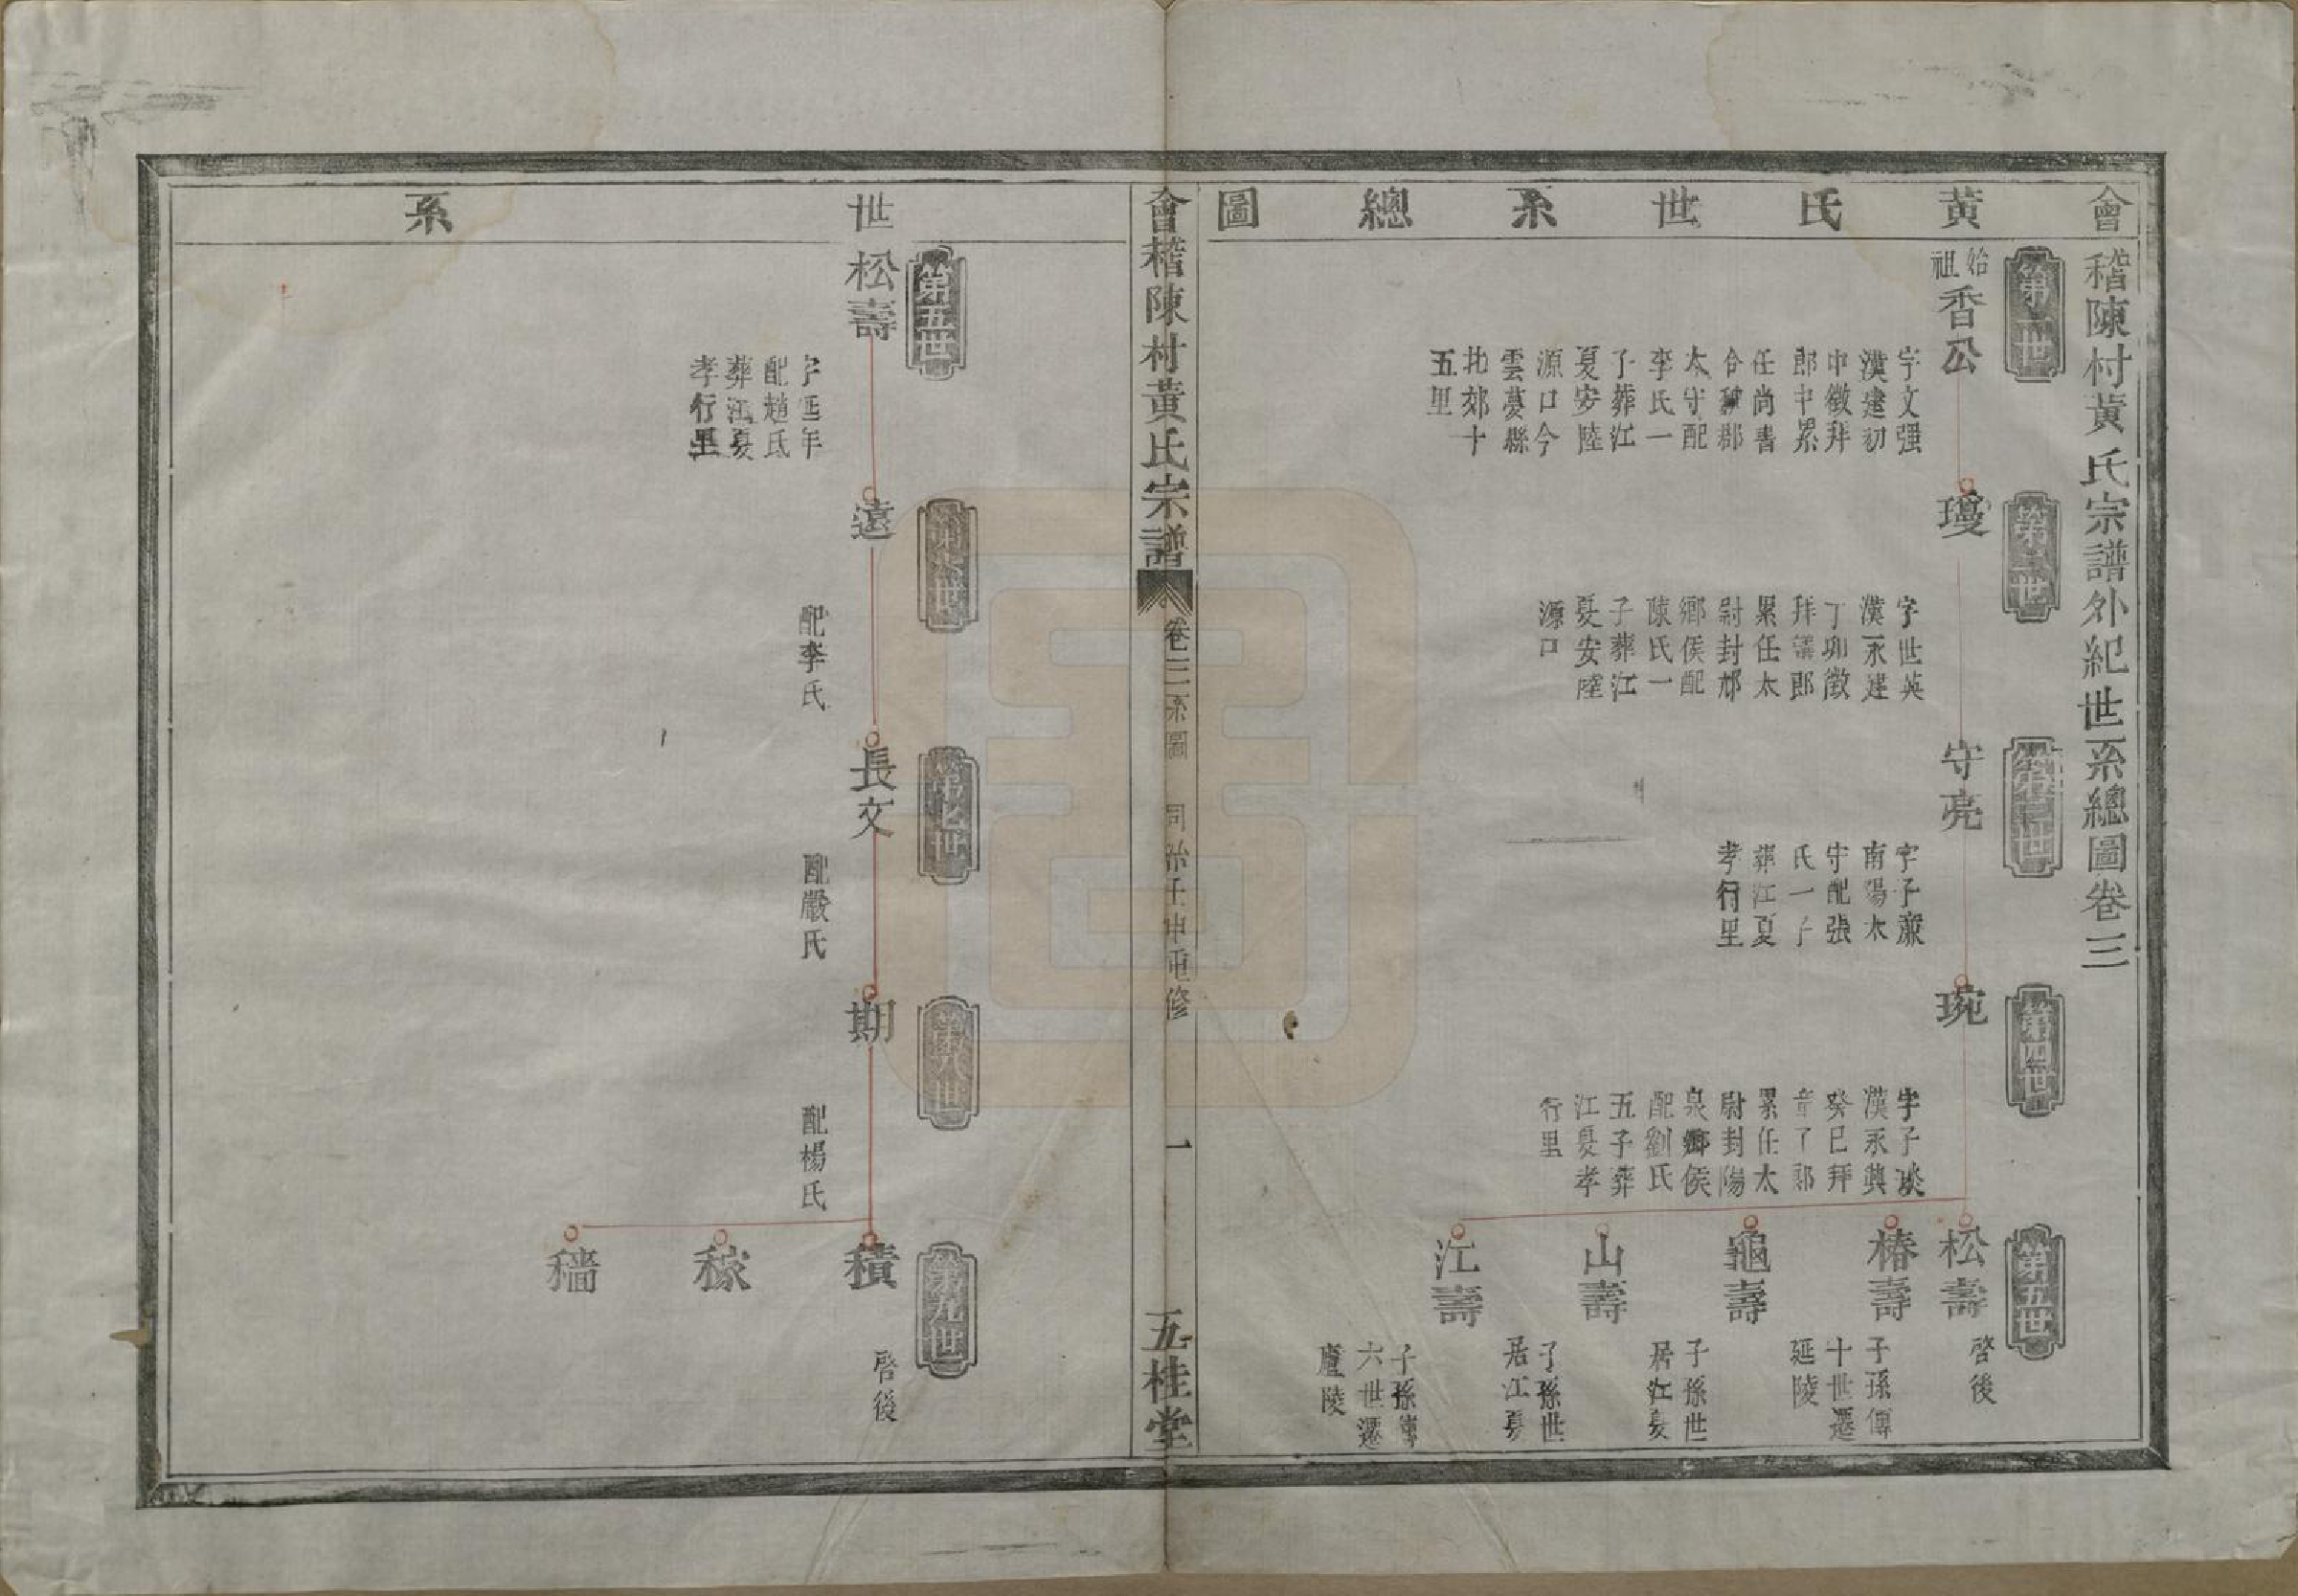 會稽陳村黃氏宗譜外紀世系總圖卷三
黃氏世系總圖
第一世
始祖
香公
字文强
漢建初
中徵拜
郎中累
任尚書
令魏郡
太守配
李氏一
子葬江
夏安陸
源口今
雲夢縣
北郊十
五里
第二世
瓊
字世英
漢永建
丁卯徵
拜議郎
累任太
尉封邟
鄉侯配
陳氏一
子葬江
夏安陸
源口
第三世
守亮
字子廉
南陽太
守配張
氏一子
葬江夏
孝行里
第四世
琬
字子琰
漢永興
癸巳拜
童子郎
累任太
尉封陽
泉鄉侯
配劉氏
五子葬
江夏孝
行里
第五世
松壽
啓後
椿壽
子孫傳
十世遷
延陵
龜壽
子孫世
居江夏
山壽
子孫世
居江夏
江壽
子孫傳
六世遷
廬陵
會稽陳村黃氏宗譜
卷三 系圖
同治壬申重修
一
五桂堂
世系
第五世
松壽
字延年
配趙氏
葬江夏
孝行里
第六世
遠
配李氏
第七世
長文
配嚴氏
第八世
期
配楊氏
第九世
積
啓後
稼
穡